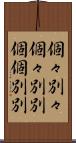 個々別々
個々別別
個個別別